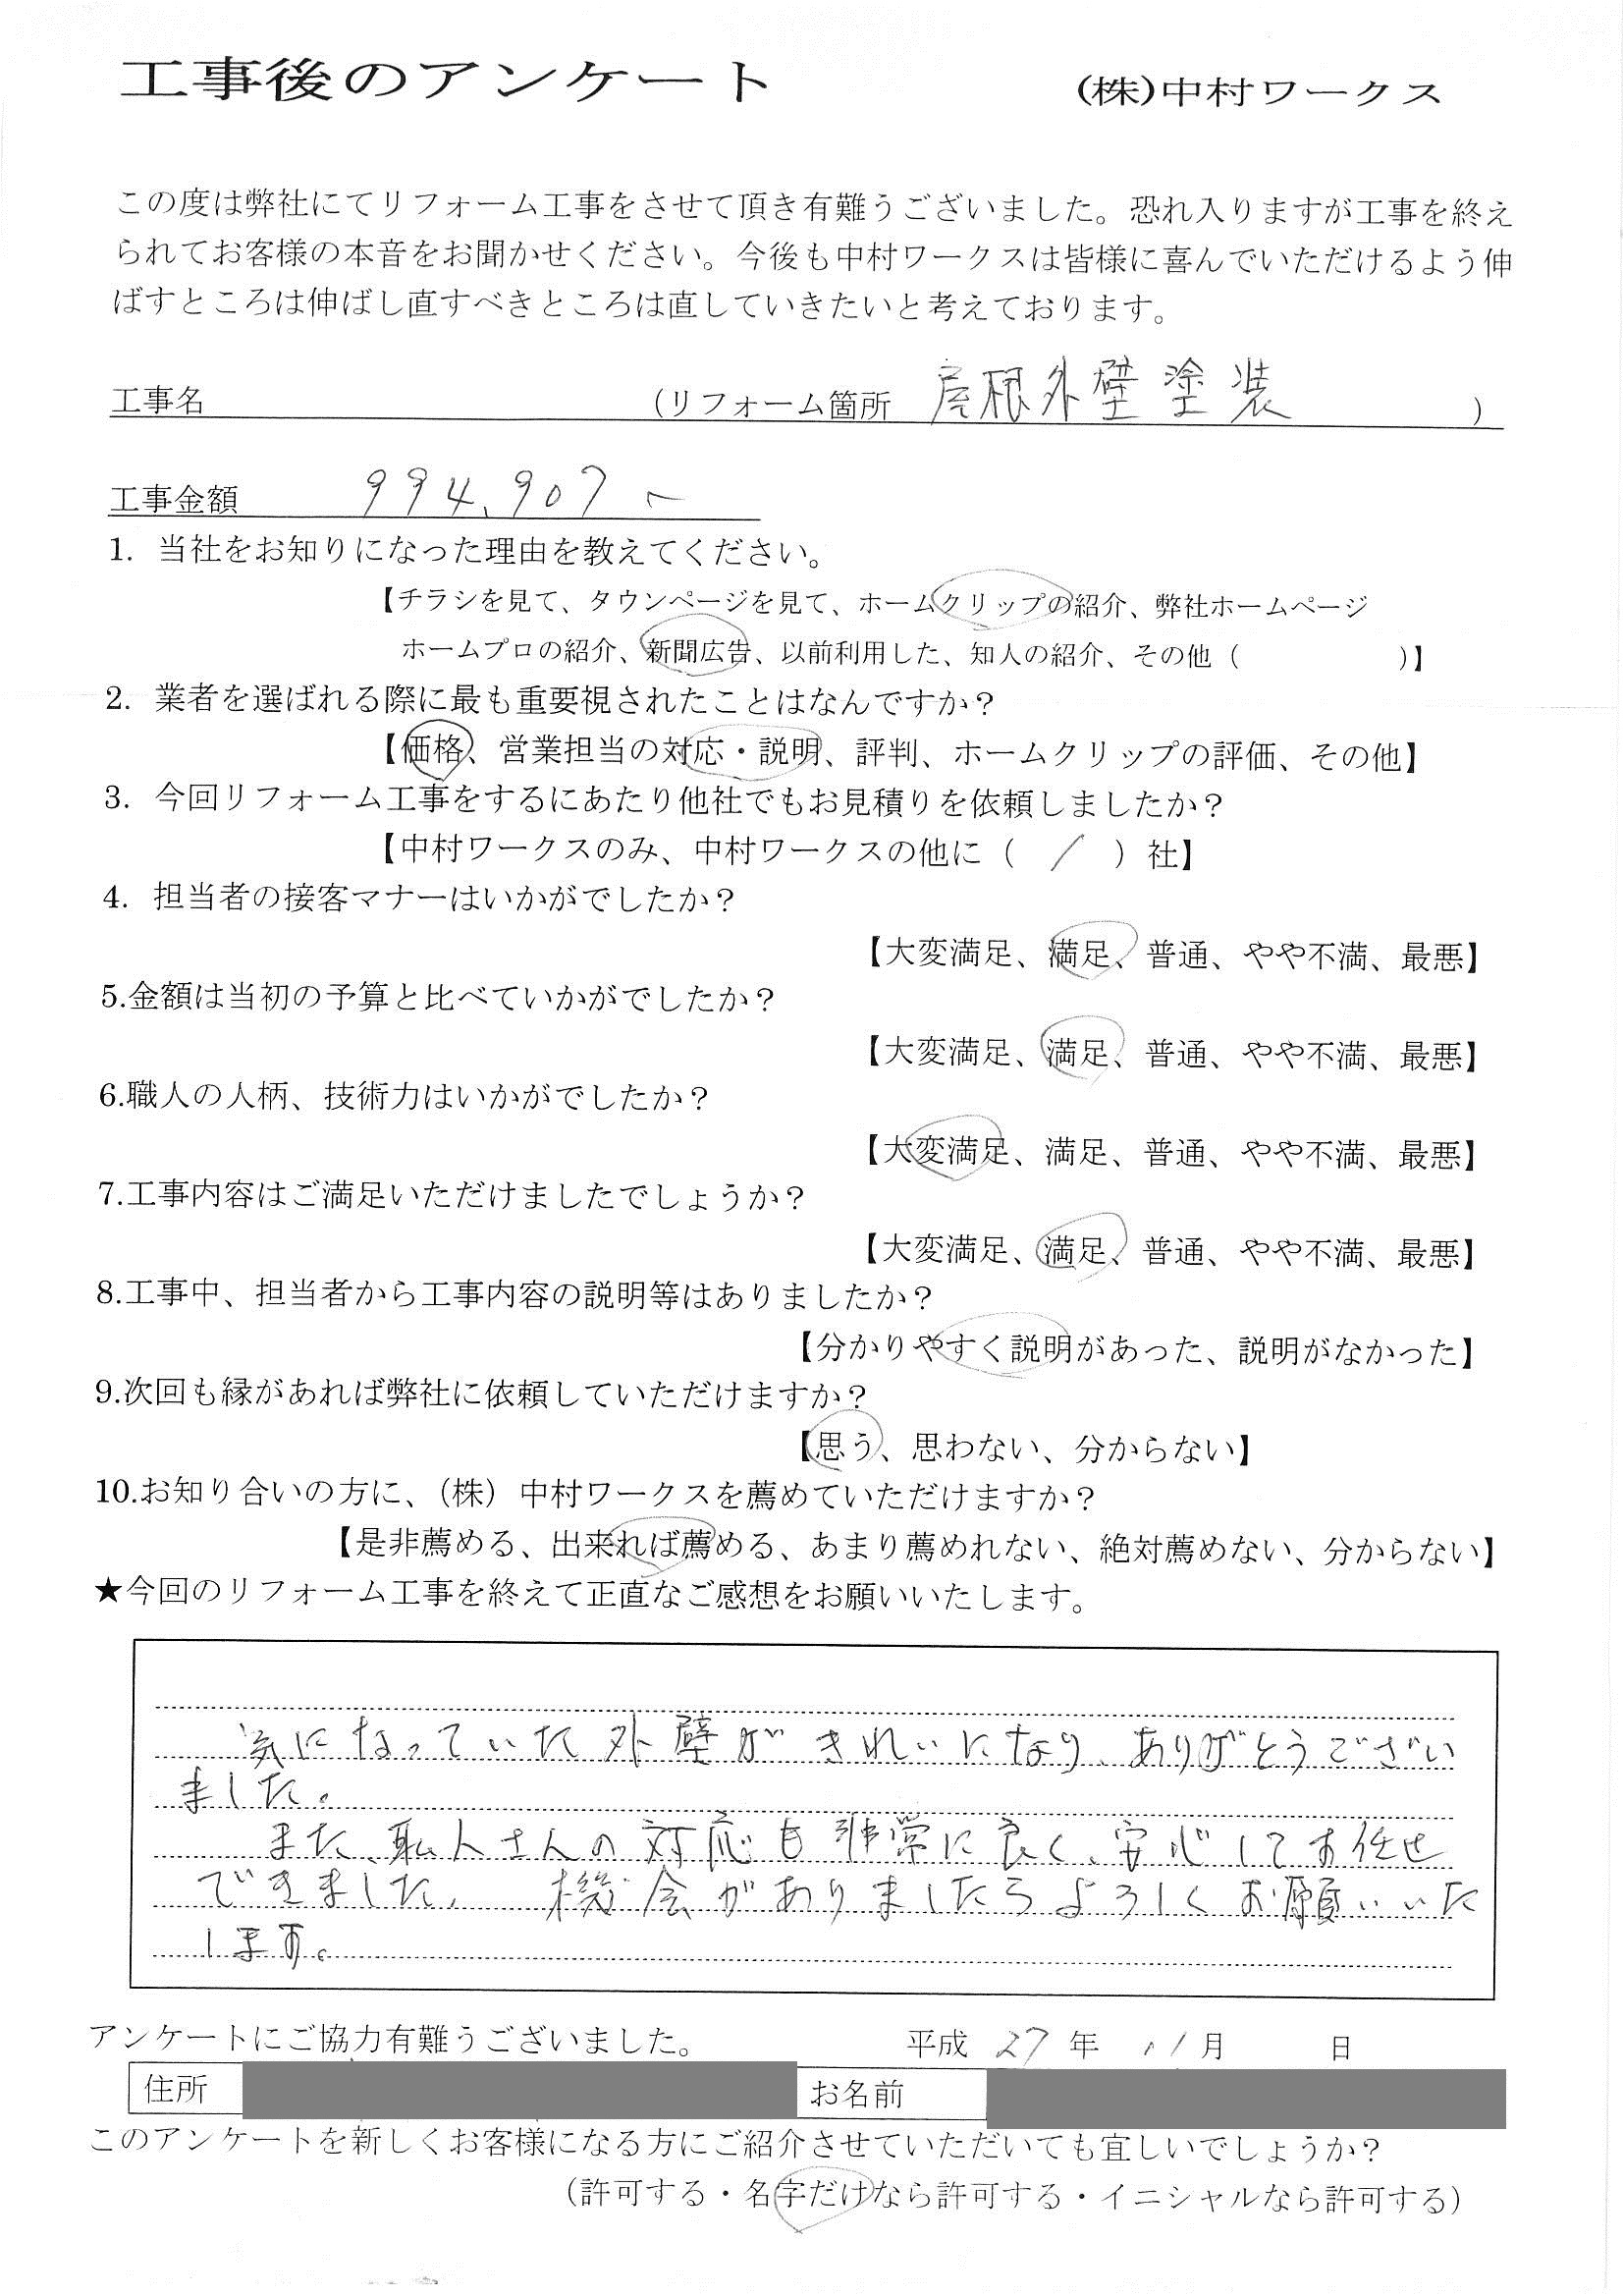 工事後のアンケート (株)中村ワークス
この度は弊社にてリフォーム工事をさせて頂き有難うございました。恐れ入りますが工事を終え
られてお客様の本音をお聞かせください。今後も中村ワークスは皆様に喜んでいただけるよう伸
ばすところは伸ばし直すべきところは直していきたいと考えております。
工事名 (リフォーム箇所 屋根外壁塗装 )
工事金額 994,907 ー
1. 当社をお知りになった理由を教えてください。
【チラシを見て、タウンページを見て、ホームクリップの紹介、弊社ホームページ
ホームプロの紹介、新聞広告、以前利用した、知人の紹介、その他（ )】
2. 業者を選ばれる際に最も重要視されたことはなんですか？
【価格、営業担当の対応・説明、評判、ホームクリップの評価、その他】
3. 今回リフォーム工事をするにあたり他社でもお見積りを依頼しましたか？
【中村ワークスのみ、中村ワークスの他に（ / ）社】
4. 担当者の接客マナーはいかがでしたか？
【大変満足、満足、普通、やや不満、最悪】
5.金額は当初の予算と比べていかがでしたか？
【大変満足、満足、普通、やや不満、最悪】
6.職人の人柄、技術力はいかがでしたか？
【大変満足、満足、普通、やや不満、最悪】
7.工事内容はご満足いただけましたでしょうか？
【大変満足、満足、普通、やや不満、最悪】
8.工事中、担当者から工事内容の説明等はありましたか？
【分かりやすく説明があった、説明がなかった】
9.次回も縁があれば弊社に依頼していただけますか？
【思う、思わない、分からない】
10.お知り合いの方に、（株）中村ワークスを薦めていただけますか？
【是非薦める、出来れば薦める、あまり薦めれない、絶対薦めない、分からない】
★今回のリフォーム工事を終えて正直なご感想をお願いいたします。
気になっていた外壁がきれいになり、ありがとうござい
ました。
また、職人さんの対応も非常に良く、安心してお任せ
できました。 機会がありましたらよろしくお願いいた
します。
アンケートにご協力有難うございました。 平成 27 年 11 月 日
住所 お名前
このアンケートを新しくお客様になる方にご紹介させていただいても宜しいでしょうか？
（許可する・名字だけなら許可する・イニシャルなら許可する）